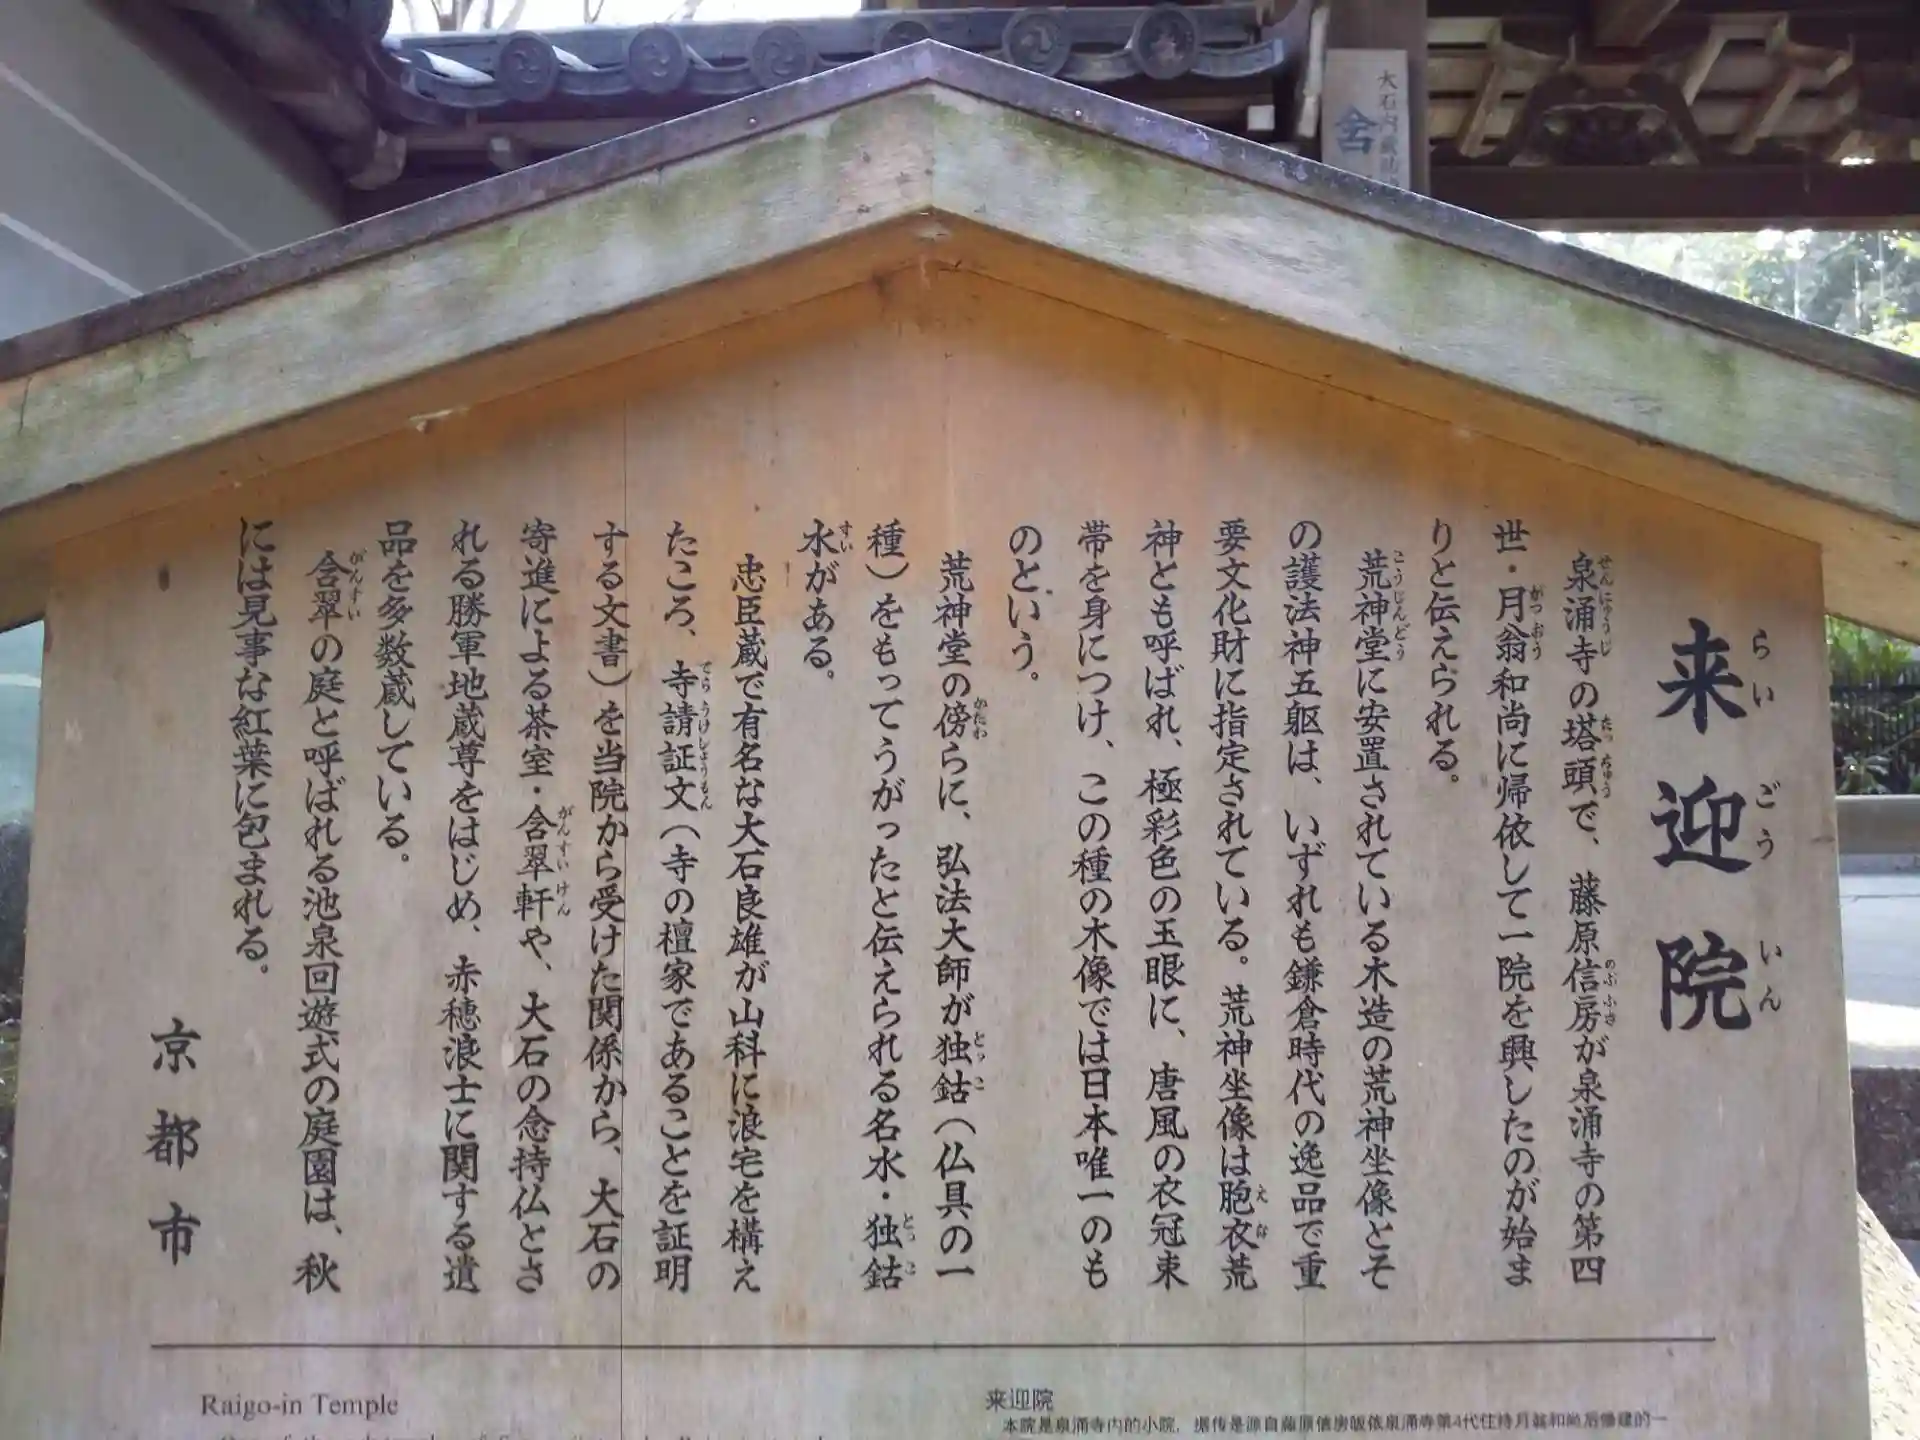 来迎院
らいごういん
泉涌寺の塔頭で、藤原信房が泉涌寺の第四
世・月翁和尚に帰依して一院を興したのが始ま
りと伝えられる。
荒神堂に安置されている木造の荒神坐像とそ
の護法神五躯は、いずれも鎌倉時代の逸品で重
要文化財に指定されている。荒神坐像は胞衣荒
神とも呼ばれ、極彩色の玉眼に、唐風の衣冠束
帯を身につけ、この種の木像では日本唯一のも
のという。
荒神堂の傍らに、弘法大師が独鈷（仏具の一
種）をもってうがったと伝えられる名水・独鈷
水がある。
忠臣蔵で有名な大石良雄が山科に浪宅を構え
たころ、寺請証文（寺の檀家であることを証明
する文書）を当院から受けた関係から、大石の
寄進による茶室・含翠軒や、大石の念持仏とさ
れる勝軍地蔵尊をはじめ、赤穂浪士に関する遺
品を多数蔵している。
含翠の庭と呼ばれる池泉回遊式の庭園は、秋
には見事な紅葉に包まれる。
京都市
Raigo-in Temple
来迎院
本院是泉涌寺内的小院，据传是源自藤原信房皈依泉涌寺第4代住持月翁和尚后修建的一
大石内蔵助
含